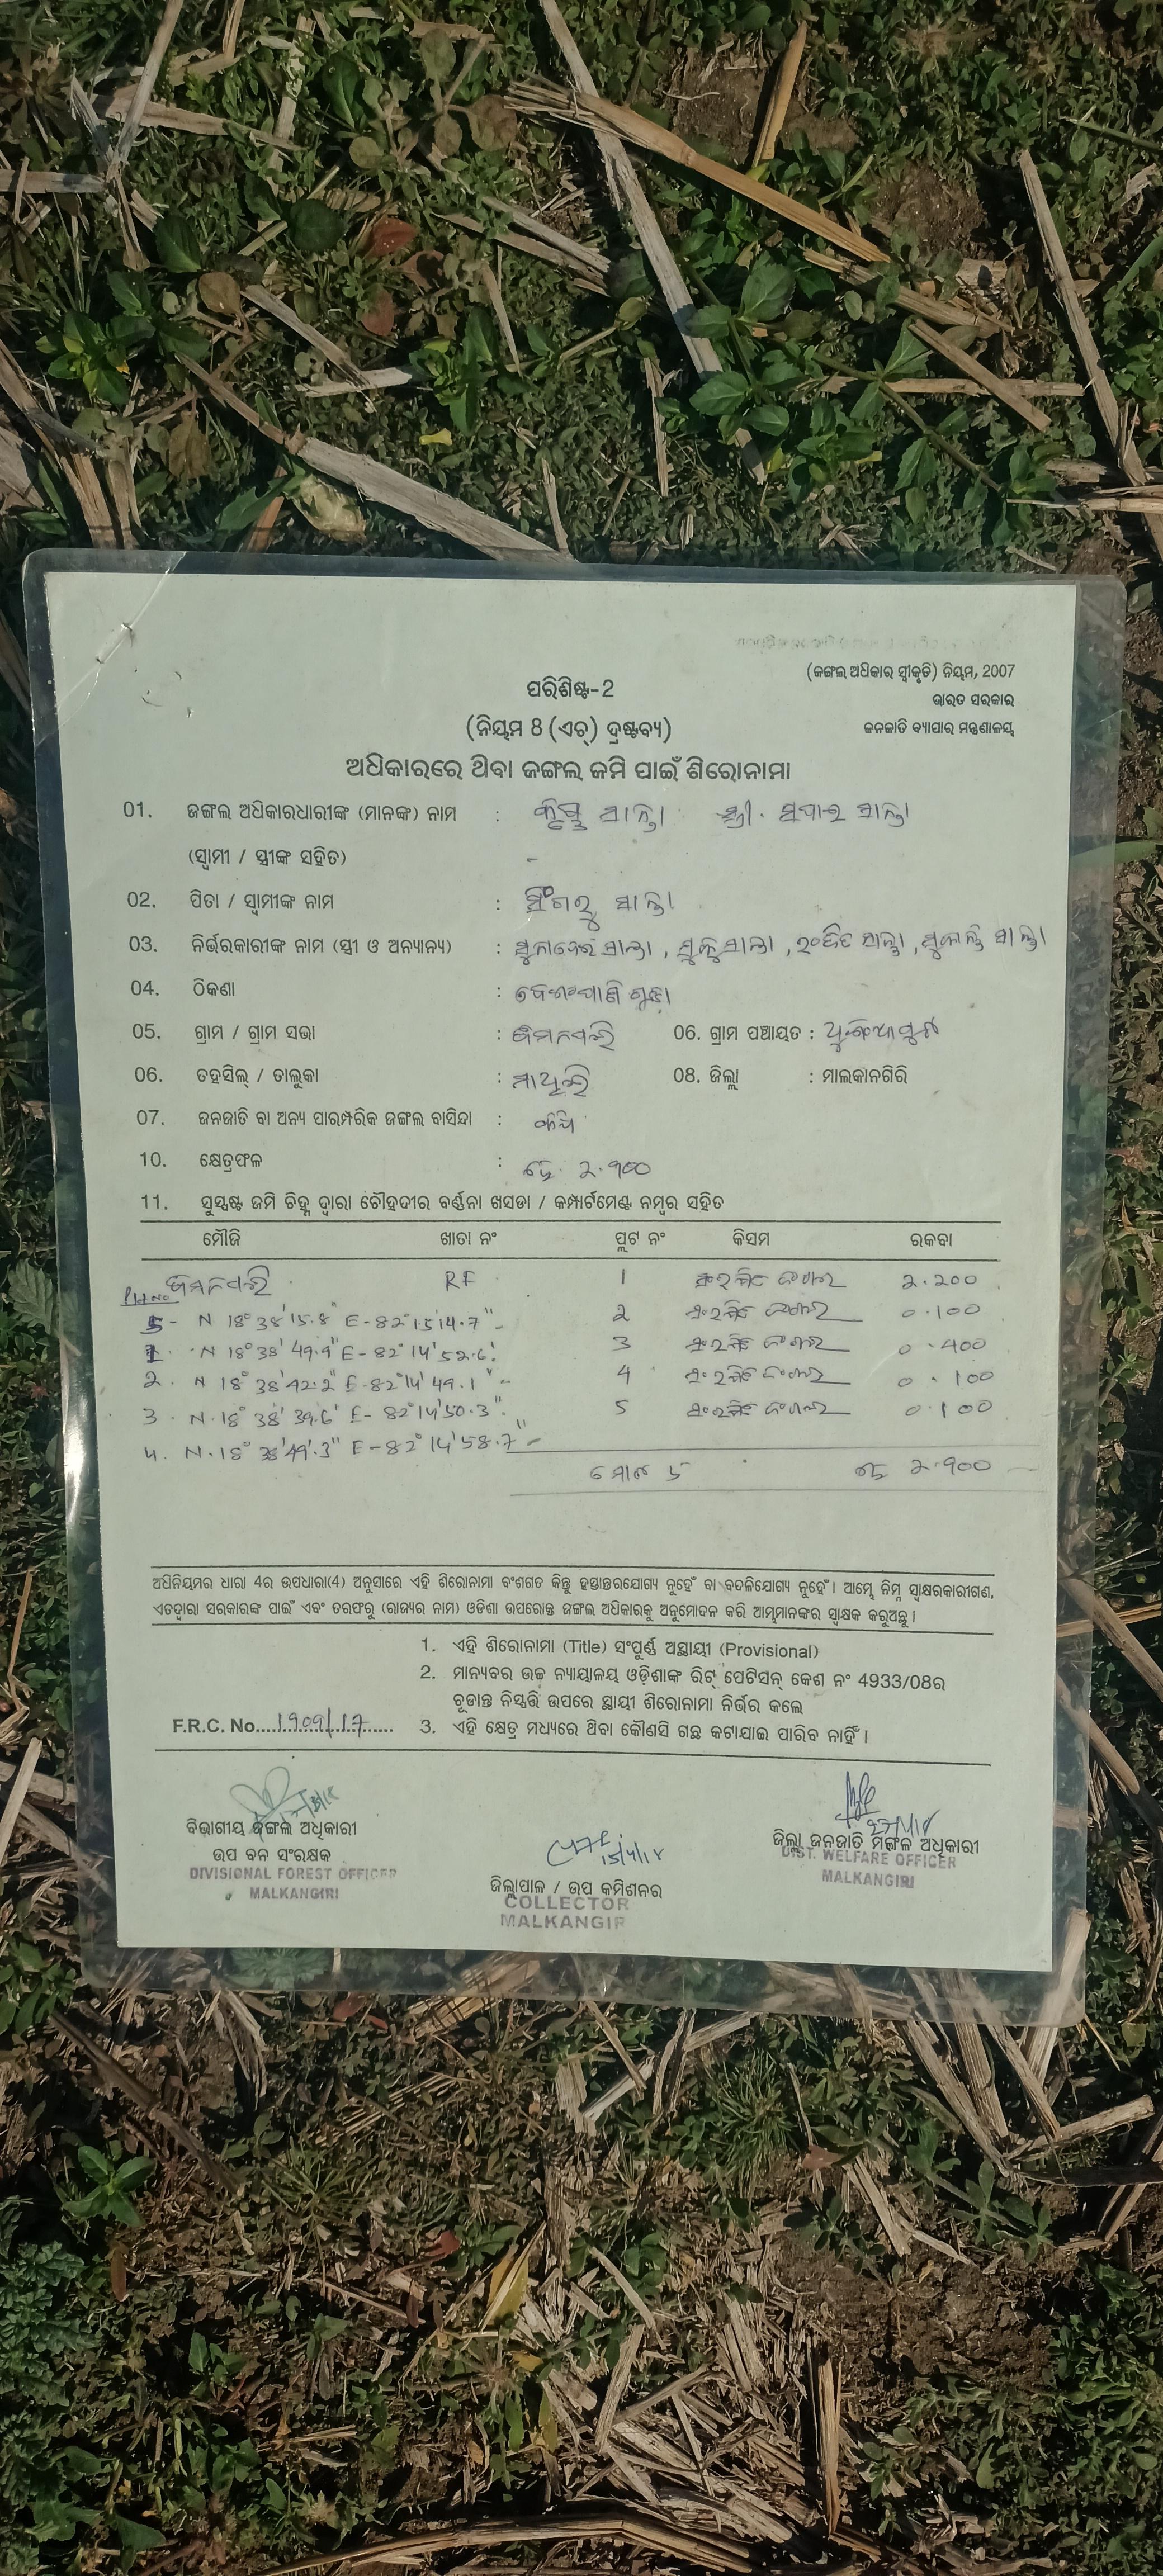 (ଜଙ୍ଗଲ ଅଧିକାର ସ୍ୱୀକୃତି) ନିୟମ, 2007
ଭାରତ ସରକାର
ଜନଜାତି ବ୍ୟାପାର ମନ୍ତ୍ରଣାଳୟ
ପରିଶିଷ୍ଟ-2
(ନିୟମ 8 (ଏଚ୍) ଦ୍ରଷ୍ଟବ୍ୟ)
ଅଧିକାରରେ ଥିବା ଜଙ୍ଗଲ ଜମି ପାଇଁ ଶିରୋନାମା
01. ଜଙ୍ଗଲ ଅଧିକାରଧାରୀଙ୍କ (ମାନଙ୍କ) ନାମ :
(ସ୍ୱାମୀ / ସ୍ତ୍ରୀଙ୍କ ସହିତ) -
02. ପିତା / ସ୍ୱାମୀଙ୍କ ନାମ :
03. ନିର୍ଭରକାରୀଙ୍କ ନାମ (ସ୍ତ୍ରୀ ଓ ଅନ୍ୟାନ୍ୟ) :
04. ଠିକଣା :
05. ଗ୍ରାମ / ଗ୍ରାମ ସଭା : 06. ଗ୍ରାମ ପଞ୍ଚାୟତ :
06. ତହସିଲ୍ / ତାଲୁକା : ମାଥିଲି 08. ଜିଲ୍ଲା : ମାଲକାନଗିରି
07. ଜନଜାତି ବା ଅନ୍ୟ ପାରମ୍ପରିକ ଜଙ୍ଗଲ ବାସିନ୍ଦା :
10. କ୍ଷେତ୍ରଫଳ : ହେ. ୨.୭୦୦
11. ସୁସ୍ପଷ୍ଟ ଜମି ଚିହ୍ନ ଦ୍ୱାରା ଚୌହଦୀର ବର୍ଣ୍ଣନା ଖସଡା / କମ୍ପାର୍ଟମେଣ୍ଟ ନମ୍ବର ସହିତ
ମୌଜି ଖାତା ନଂ ପ୍ଲଟ ନଂ କିସମ ରକବା
RF 1 ସଂରକ୍ଷିତ ଜଂଗଲ 2.200
5- N 18° 38' 15.8" E-82° 15' 14.7" 2 ସଂରକ୍ଷିତ ଜଂଗଲ 0.100
1. N 18° 38' 49.9" E-82° 14' 52.6" 3 ସଂରକ୍ଷିତ ଜଂଗଲ 0.400
2. N 18° 38' 42.2" E-82° 14' 49.1" 4 ସଂରକ୍ଷିତ ଜଂଗଲ 0.100
3. N.18° 38' 39.6" E-82° 14' 50.3" 5 ସଂରକ୍ଷିତ ଜଂଗଲ 0.100
4. N.18° 38' 49.3" E-82° 14' 58.7"
ମୋଟ ୫ ହେ ୨.୭୦୦
ଅଧିନିୟମର ଧାରା 4ର ଉପଧାରା(4) ଅନୁସାରେ ଏହି ଶିରୋନାମା ବଂଶଗତ କିନ୍ତୁ ହସ୍ତାନ୍ତରଯୋଗ୍ୟ ନୁହେଁ ବା ବଦଳିଯୋଗ୍ୟ ନୁହେଁ । ଆମ୍ଭେ ନିମ୍ନ ସ୍ୱାକ୍ଷରକାରୀଗଣ,
ଏତଦ୍ୱାରା ସରକାରଙ୍କ ପାଇଁ ଏବଂ ତରଫରୁ (ରାଜ୍ୟର ନାମ) ଓଡିଶା ଉପରୋକ୍ତ ଜଙ୍ଗଲ ଅଧିକାରକୁ ଅନୁମୋଦନ କରି ଆମ୍ଭମାନଙ୍କର ସ୍ୱାକ୍ଷର କରୁଅଛୁ ।
1. ଏହି ଶିରୋନାମା (Title) ସଂପୁର୍ଣ୍ଣ ଅସ୍ଥାୟୀ (Provisional)
2. ମାନ୍ୟବର ଉଚ୍ଚ ନ୍ୟାୟାଳୟ ଓଡ଼ିଶାଙ୍କ ରିଟ୍ ପେଟିସନ୍ କେଶ ନଂ 4933/08ର
ଚୂଡାନ୍ତ ନିସ୍ପତ୍ତି ଉପରେ ସ୍ଥାୟୀ ଶିରୋନାମା ନିର୍ଭର କଲେ
F.R.C. No....1909/17...... 3. ଏହି କ୍ଷେତ୍ର ମଧ୍ୟରେ ଥିବା କୌଣସି ଗଛ କଟାଯାଇ ପାରିବ ନାହିଁ ।
ବିଭାଗୀୟ ଜଙ୍ଗଲ ଅଧିକାରୀ
ଉପ ବନ ସଂରକ୍ଷକ
DIVISIONAL FOREST OFFICER
MALKANGIRI
ଜିଲ୍ଲାପାଳ / ଉପ କମିଶନର
COLLECTOR
MALKANGIR
ଜିଲ୍ଲା ଜନଜାତି ମଙ୍ଗଳ ଅଧିକାରୀ
DIST. WELFARE OFFICER
MALKANGIRI